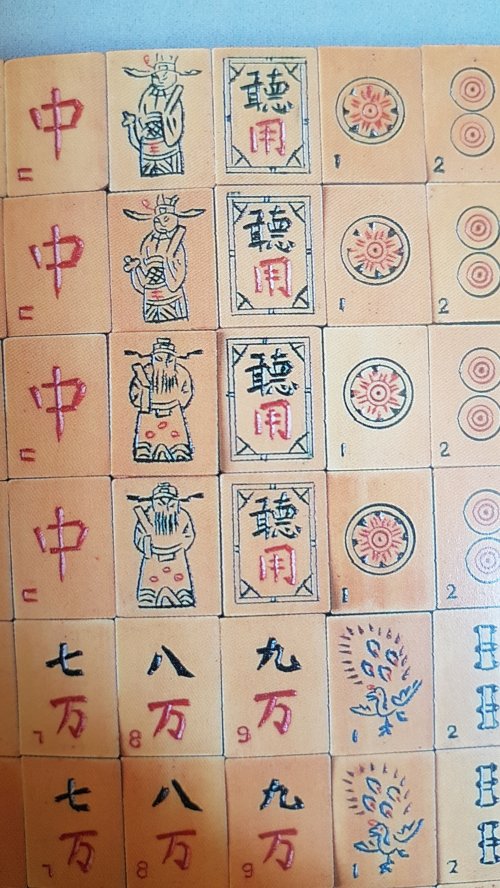 中 聽
用
C 1 2
中 聽
用
C 1 2
中 聽
用
C 1 2
中 聽
用
C 1 2
七 八 九
万 万 万
7 8 9 1 2
七 八 九
万 万 万
7 8 9 1 2